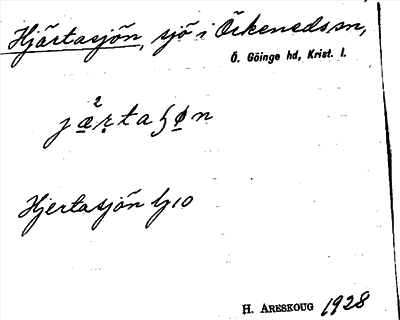 Hjärtasjön, sjö i Örkeneds sn,
Ö. Göinge hd, Krist. l.
Hjertasjön
H. ARESKOUG 1928